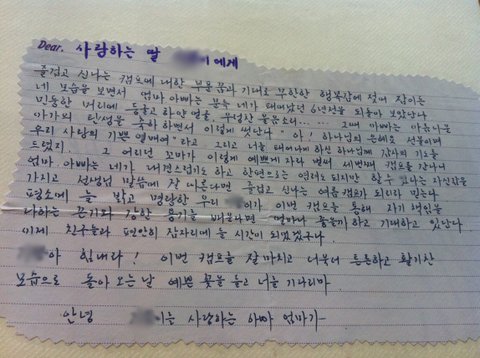 Dear. 사랑하는 딸 이에게
즐겁고 신나는 캠프에 대한 부푼 꿈과 기대로 무한한 행복감에 젖어 잠이든
네 모습을 보면서 엄마 아빠는 문득 네가 태어났던 6년전을 되돌아 보았단다
민둥한 머리에 둥글고 하얀 얼굴, 우렁찬 울음소리.... 그때 아빠는 마음이름
아가의 탄생을 축하하면서 이렇게 썼단다 "아! 하나님의 은혜요 선물이며
우리 사랑의 기쁜 열매여" 라고 그리고 너를 태어나게 하신 하나님께 감사의 기도를
드렸지.... 그 어리던 꼬마가 이렇게 예쁘게 자라 벌써 세번째 캠프를 간다니
엄마. 아빠는 네가 대견스럽기도 하고 한편으론 염려도 되지만 할 수 있다는 자신감을
가지고 선생님 말씀에 잘 따른다면 즐겁고 신나는 여름캠프가 되리라 믿는다
평소에 늘 밝고 명랑한 우리 이가 이번 캠프를 통해 자기 책임을
다하는 끈기와 강한 용기를 배운다면 얼마나 좋을까 하고 기대하고 있단다
이제 친구들과 편안히 잠자리에 들 시간이 되었겠구나.
아 힘내라! 이번 캠프를 잘 마치고 더욱더 튼튼하고 활기찬
모습으로 돌아 오는 날 예쁜 꽃을 들고 너를 기다리마.
안녕 이를 사랑하는 아빠 엄마가